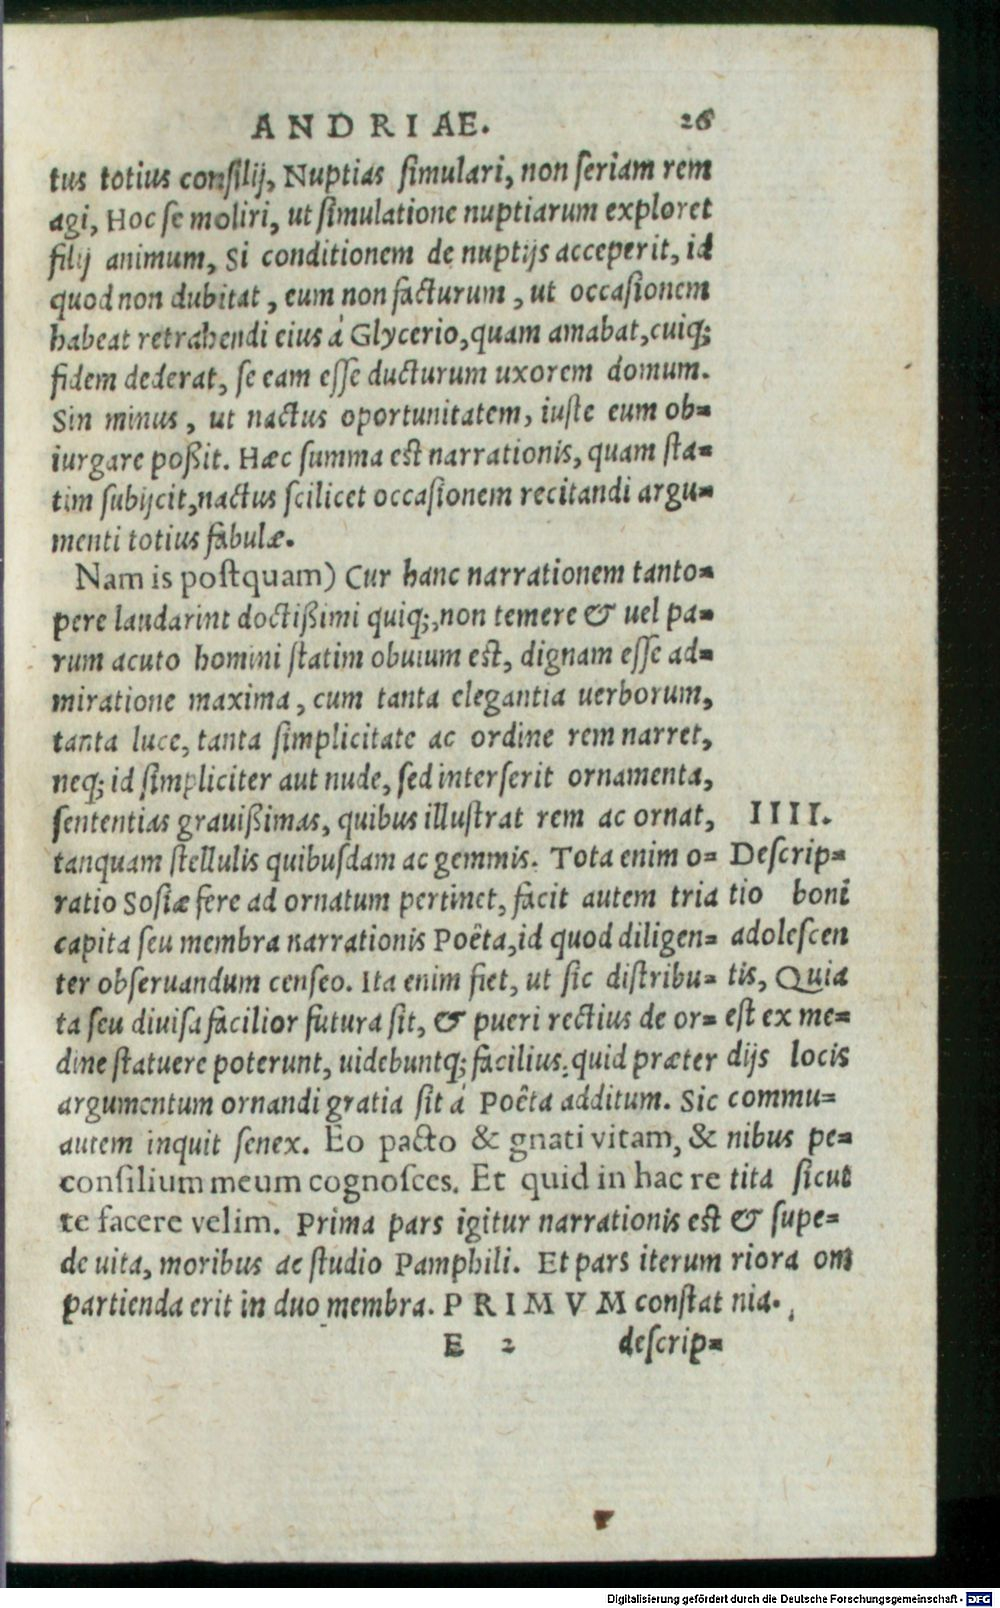 ANDRIAE. 26
tus totius consilij, Nuptias simulari, non seriam rem
agi, Hoc se moliri, ut simulatione nuptiarum exploret
filij animum, Si conditionem de nuptijs acceperit, id
quod non dubitat, eum non facturum, ut occasionem
habeat retrahendi eius á Glycerio, quam amabat, cuiq;
fidem dederat, se eam esse ducturum uxorem domum.
Sin minus, ut nactus oportunitatem, iuste eum ob=
iurgare poßit. Hæc summa est narrationis, quam sta=
tim subijcit, nactus scilicet occasionem recitandi argu=
menti totius fabulæ.
Nam is postquam) Cur hanc narrationem tanto=
pere laudarint doctißimi quiq;, non temere & uel pa=
rum acuto homini statim obuium est, dignam esse ad=
miratione maxima, cum tanta elegantia uerborum,
tanta luce, tanta simplicitate ac ordine rem narret,
neq; id simpliciter aut nude, sed interserit ornamenta,
sententias grauißimas, quibus illustrat rem ac ornat,
tanquam stellulis quibusdam ac gemmis. Tota enim o=
ratio Sosiæ fere ad ornatum pertinet, facit autem tria
capita seu membra narrationis Poëta, id quod diligen=
ter obseruandum censeo. Ita enim fiet, ut sic distribu=
ta seu diuisa facilior futura sit, & pueri rectius de or=
dine statuere poterunt, uidebuntq; facilius, quid præter
argumentum ornandi gratia sit á Poëta additum. Sic
autem inquit senex. Eo pacto & gnati vitam, &
consilium meum cognosces. Et quid in hac re
te facere velim. Prima pars igitur narrationis est
de uita, moribus ac studio Pamphili. Et pars iterum
partienda erit in duo membra. PRIMVM constat
IIII.
Descrip=
tio boni
adolescen
tis, Quia
est ex me=
dijs locis
commu=
nibus pe=
tita sicut
& supe=
riora om
nia.
E 2 descrip=
Digitalisierung gefördert durch die Deutsche Forschungsgemeinschaft - DFG